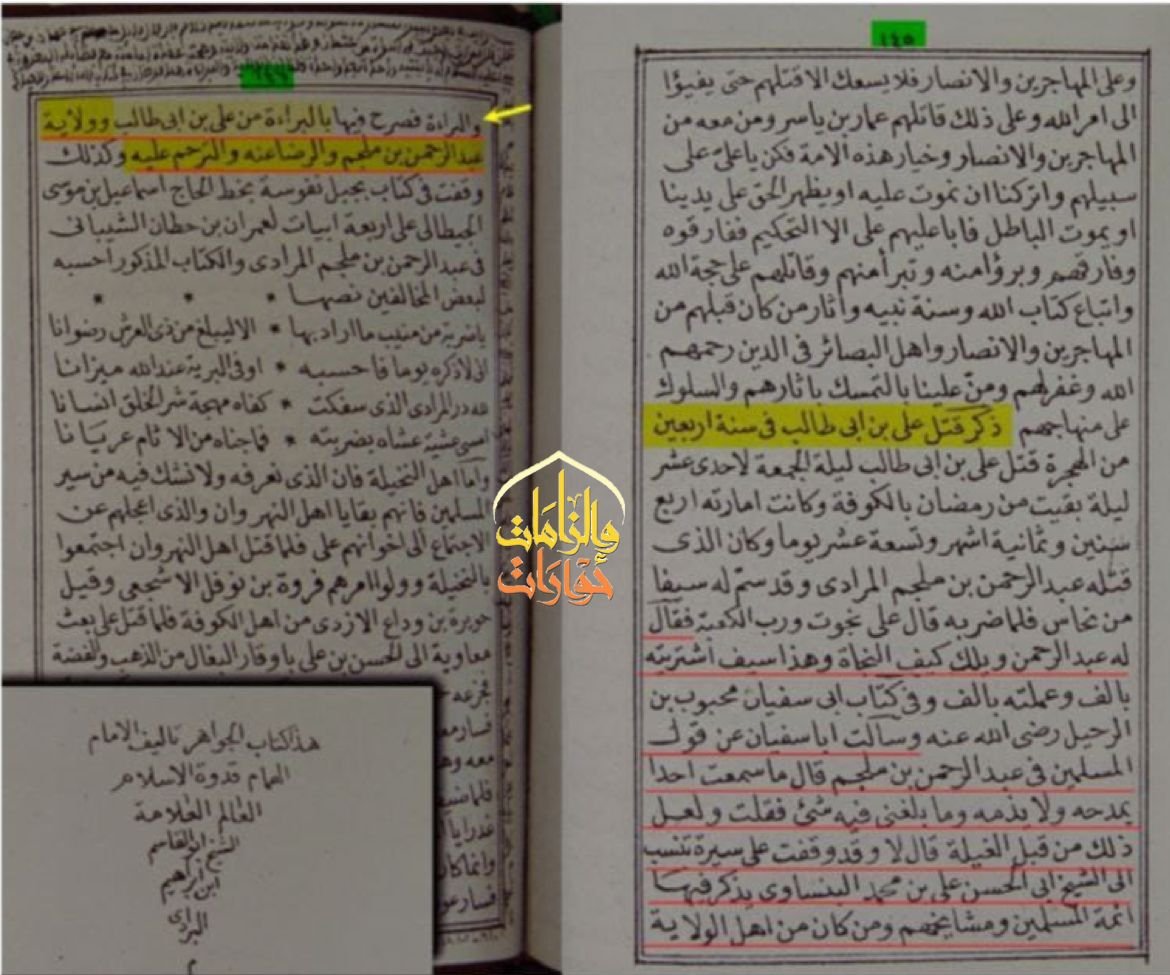 ١٤٥
وعلى المهاجرين والانصار فلا يسعك الا قتلهم حتى يفيؤا
الى امر الله وعلى ذلك قاتلهم عمار بن ياسر ومن معه من
المهاجرين والانصار وخيار هذه الامة فكن يا على على
سبيلهم واتركنا ان نموت عليه او يظهر الحق على يدينا
او يموت الباطل فابا عليهم على الا التحكيم ففارقوه
وفارقهم وبرؤا منه وتبرأ منهم وقاتلهم على حجة الله
واتباع كتاب الله وسنة نبيه واثار من كان قبلهم من
المهاجرين والانصار واهل البصائر فى الدين رحمهم
الله وغفر لهم ومنّ علينا بالتمسك باثارهم والسلوك
على منهاجهم ذكر قتل على بن ابى طالب فى سنة اربعين
من الهجرة قتل على بن ابى طالب ليلة الجمعة لاحدى عشر
ليلة بقيت من رمضان بالكوفة وكانت امارته اربع
سنين وثمانية اشهر وتسعة عشر يوما وكان الذى
قتله عبد الرحمن بن ملجم المرادى وقد سمّ له سيفا
من نحاس فلما ضربه قال على نجوت ورب الكعبة فقال
له عبد الرحمن ويلك كيف النجاة وهذا سيف اشتريته
بالف وعملته بالف وفى كتاب ابى سفيان محبوب بن
الرحيل رضى الله عنه وسألت ابا سفيان عن قول
المسلمين فى عبد الرحمن بن ملجم قال ما سمعت احدا
يمدحه ولا يذمه وما بلغنى فيه شئ فقلت ولعل
ذلك من قبل الغيلة قال لا وقد وقفت على سيرة تنسب
الى الشيخ ابى الحسن على بن محمد البنساوى يذكر فيها
ائمة المسلمين ومشايخهم ومن كان من اهل الولاية
١٤٦
والبراءة فصرح فيها بالبراءة من على بن ابى طالب وولاية
عبد الرحمن بن ملجم والرضا عنه والترحم عليه وكذلك
وقفت فى كتاب بجبل نفوسة بخط الحاج اسماعيل بن موسى
الجيطالى على اربعة ابيات لعمران بن حطان الشيبانى
فى عبد الرحمن بن ملجم المرادى والكتاب المذكور احسبه
لبعض المخالفين نصها * * *
يا ضربة من منيب ما اراد بها * الا ليبلغ من ذى العرش رضوانا
انى لاذكره يوما فاحسبه * اوفى البرية عند الله ميزانا
لله در المرادى الذى سفكت * كفاه مهجة شر الخلق انسانا
امسى عشية غشاه بضربته * فما جناه من الاثام عريانا
واما اهل النخيلة فان الذى نعرفه ولا نشك فيه من سير
المسلمين فانهم بقايا اهل النهروان والذى اعجلهم عن
الاجتماع الى اخوانهم على فلما قتل اهل النهروان اجتمعوا
بالنخيلة وولوا امرهم فروة بن نوفل الاشجعى وقيل
حوبرة بن وداع الازدى من اهل الكوفة فلما قتل على بعث
معاوية الى الحسن بن على باوقار البغال من الذهب والفضة
فسار
معه
وانما كان
هذا كتاب الجواهر تاليف الامام
الهمام قدوة الاسلام
العالم العلامة
الشيخ ابو القاسم
ابن ابراهيم
البرادى
م
والزامات
حوارات